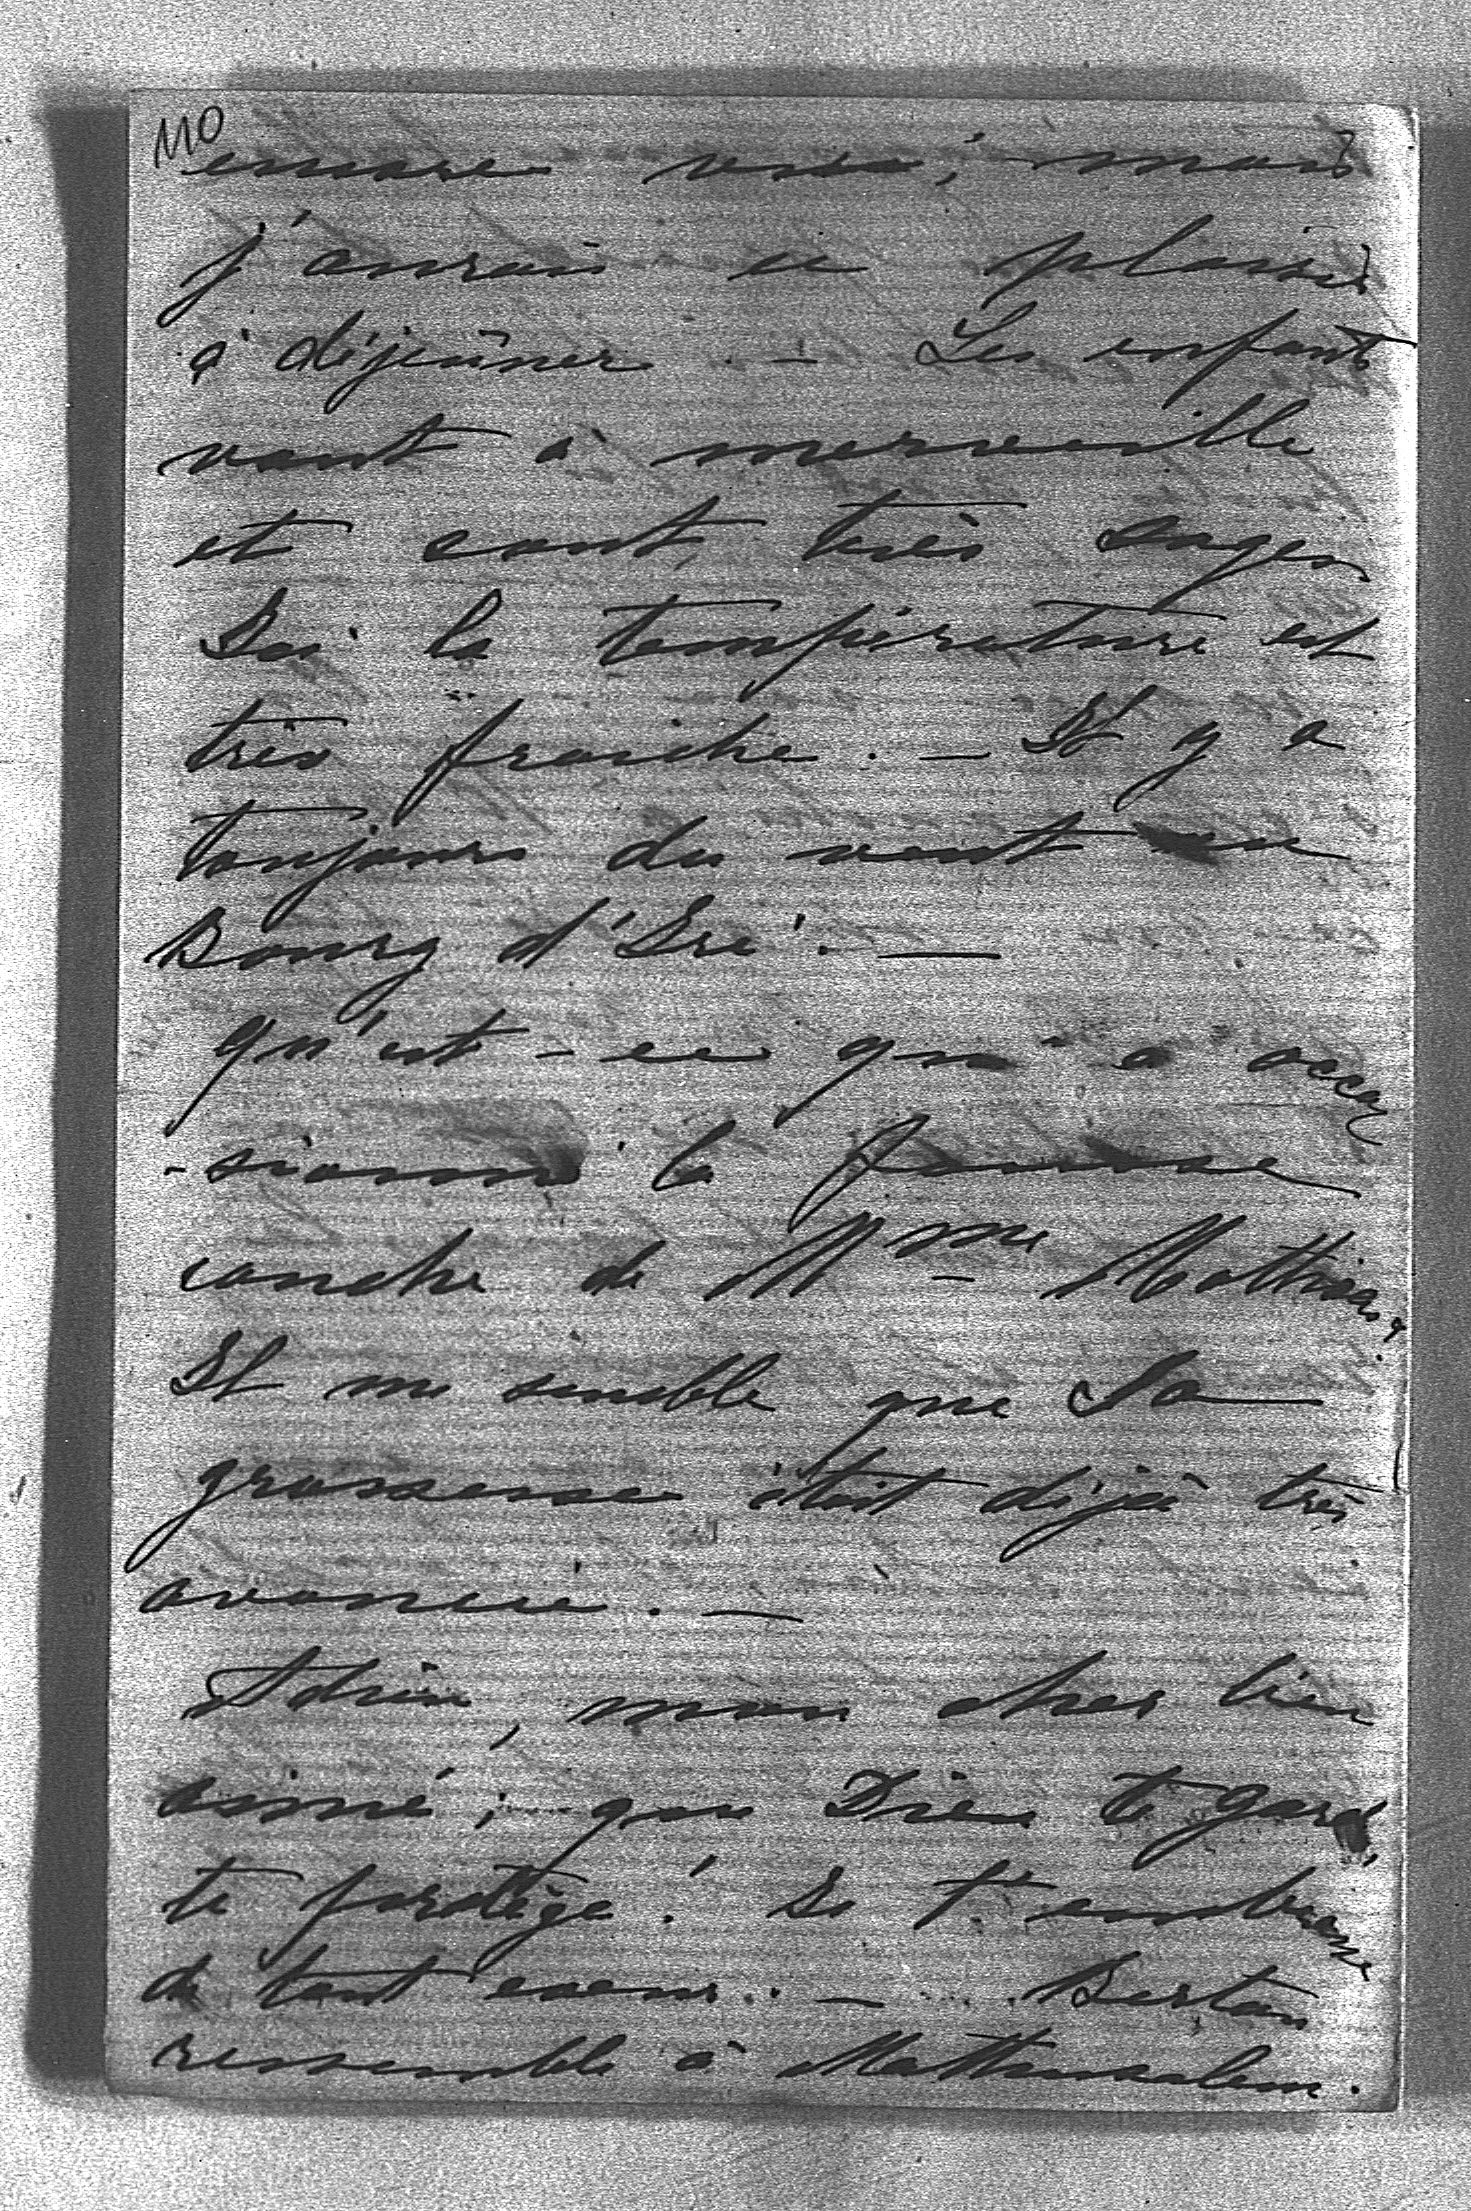 110
encore rien ; mais
j'aurai ce plaisir
à déjeûner. — Les enfants
vont à merveille
et sont très sages
Ici la température est
très fraiche. — Il y a
toujours du vent au
Bourg d'Iré. —
qu'est-ce qui a occa
-sionné la fausse
couche de Mme Mathieu.
Il me semble que sa
grossesse était déjà très
avancée. —
Adieu, mon cher bien
aimé ; que Dieu te garde,
te protège ! Je t'embrasse
de tout coeur. — Bertou
ressemble à Mathusalem.